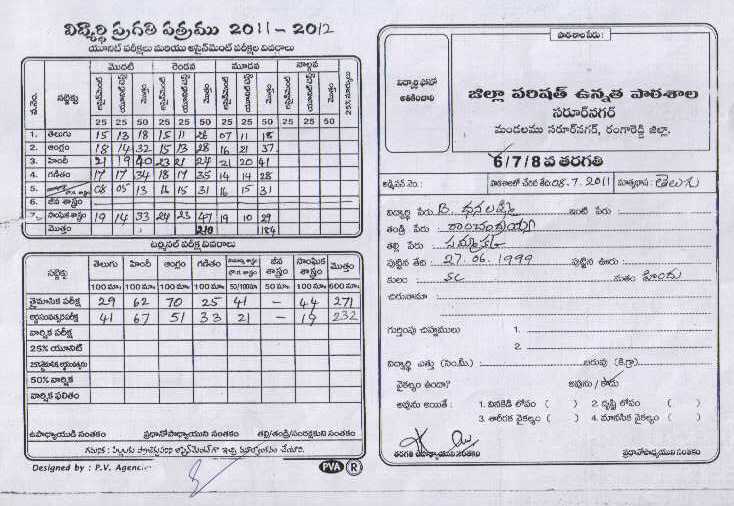 విద్యార్థి ప్రగతి పత్రము 2011 - 2012
యూనిట్ పరీక్షలు మరియు అసైన్‌మెంట్ పరీక్షల వివరాలు
వ.నెం. సబ్జెక్టు మొదటి రెండవ మూడవ నాల్గవ 25% మార్కులు
అసైన్‌మెంట్ యూనిట్ టెస్టు మొత్తం అసైన్‌మెంట్ యూనిట్ టెస్టు మొత్తం అసైన్‌మెంట్ యూనిట్ టెస్టు మొత్తం అసైన్‌మెంట్ యూనిట్ టెస్టు మొత్తం
25 25 50 25 25 50 25 25 50 25 25 50
1. తెలుగు 15 13 18 15 11 26 07 11 18
2. ఆంగ్లం 18 14 32 15 13 28 16 21 37
3. హిందీ 21 19 40 23 21 24 21 20 41
4. గణితం 17 17 34 18 17 35 14 14 28
5. 08 05 13 16 15 31 16 15 31
6. జీవ శాస్త్రం
7. సాంఘిక శాస్త్రం 19 14 33 24 23 47 19 10 29
మొత్తం 210 184
టర్మినల్ పరీక్ష వివరాలు
సబ్జెక్టు తెలుగు హిందీ ఆంగ్లం గణితం జీవ శాస్త్రం సాంఘిక శాస్త్రం మొత్తం
100 మా. 100 మా. 100 మా. 100 మా. 50/100మా 50 మా. 100 మా. 600 మా.
త్రైమాసిక పరీక్ష 29 62 70 25 41 - 44 271
అర్థసంవత్సర పరీక్ష 41 67 51 33 21 - 19 232
వార్షిక పరీక్ష
25% యూనిట్
50% వార్షిక
వార్షిక ఫలితం
ఉపాధ్యాయుడి సంతకం ప్రధానోపాధ్యాయుని సంతకం తల్లి/తండ్రి/సంరక్షకుని సంతకం
Designed by : P.V. Agencies PVA R
పాఠశాల పేరు :
విద్యార్థి ఫోటో అతికించాలి
జిల్లా పరిషత్ ఉన్నత పాఠశాల
సరూర్‌నగర్
మండలము సరూర్‌నగర్, రంగారెడ్డి జిల్లా.
6/7/8 వ తరగతి
అడ్మిషన్ నెం. : పాఠశాలలో చేరిన తేది: 08.7.2011 మాతృభాష : తెలుగు
విద్యార్థి పేరు B. ధనలక్ష్మి ఇంటి పేరు :
తండ్రి పేరు :
తల్లి పేరు :
పుట్టిన తేది : 27.06.1999 పుట్టిన ఊరు :
కులం : SC మతం హిందు
చిరునామా :
గుర్తింపు చిహ్నములు 1.
2.
విద్యార్థి ఎత్తు (సెం.మీ) బరువు (కి.గ్రా)
వైకల్యం ఉందా? అవును / కాదు
అవును అయితే : 1. వినికిడి లోపం ( ) 2. దృష్టి లోపం ( )
3. శారీరక వైకల్యం ( ) 4. మానసిక వైకల్యం ( )
తరగతి ఉపాధ్యాయుని సంతకం ప్రధానోపాధ్యాయుని సంతకం